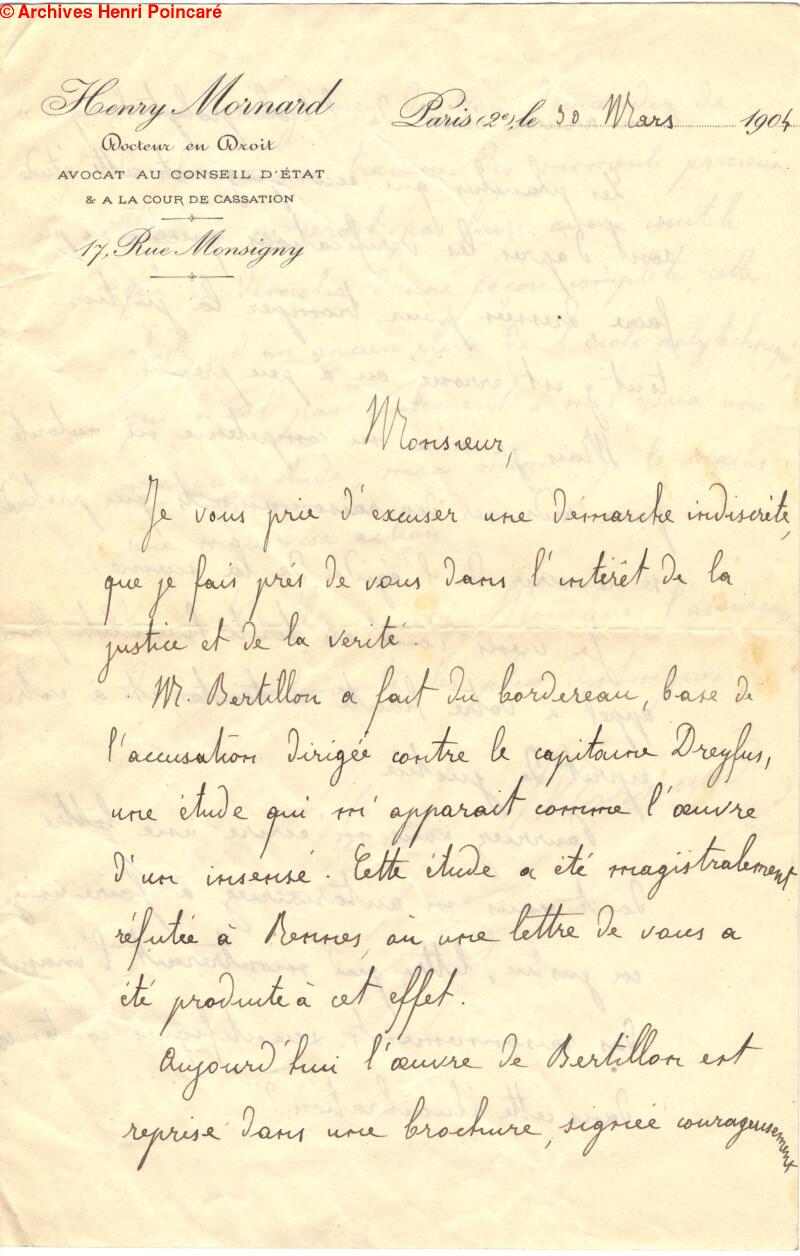 © Archives Henri Poincaré
Henry Mornard
Docteur en Droit
AVOCAT AU CONSEIL D'ÉTAT
& A LA COUR DE CASSATION
17, Rue Monsigny
Paris (2e), le 30 Mars 1904
Monsieur,
Je vous prie d'excuser une démarche indiscrète,
que je fais près de vous dans l'intérêt de la
justice et de la vérité.
M. Bertillon a fait du bordereau, base de
l'accusation dirigée contre le capitaine Dreyfus,
une étude qui m'apparait comme l'œuvre
d'un insensé. Cette étude a été magistralement
réfutée à Rennes, où une lettre de vous a
été produite à cet effet.
Aujourd'hui l'œuvre de Bertillon est
reprise dans une brochure, signée courageusement